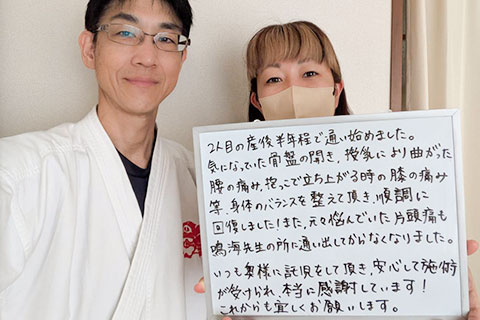 2人目の産後半年程で通い始めました。
気になっていた骨盤の開き、授乳により曲がった
腰の痛み、抱っこで立ち上がる時の膝の痛み
等、身体のバランスを整えて頂き、順調に
回復しました!また、元々悩んでいた片頭痛も
鳴海先生の所に通い出してからなくなりました。
いつも奥様に託児をして頂き、安心して施術
が受けられ、本当に感謝しています!
これからも宜しくお願いします。